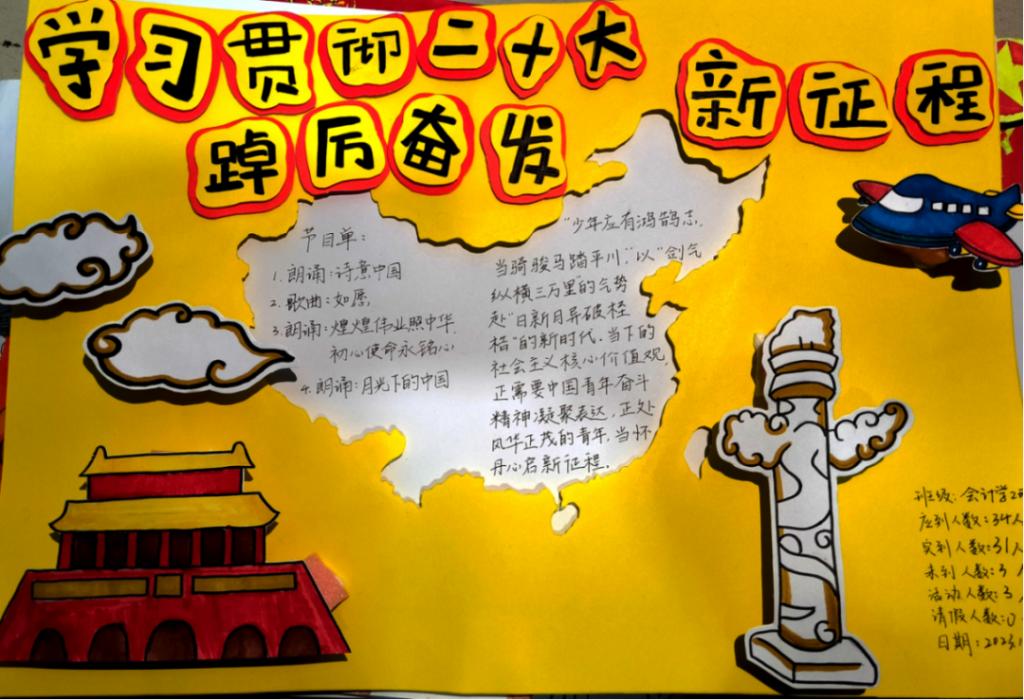 学习贯彻二十大
踔厉奋发
新征程
节目单：
1.朗诵：诗意中国
2.歌曲：如愿
3.朗诵：煌煌伟业照中华，
初心使命永铭心
4.朗诵：月光下的中国
“少年应有鸿鹄志，
当骑骏马踏平川”以“剑气
纵横三万里”的气势
赴“日新月异破桎
梏”的新时代。当下的
社会主义核心价值观
正需要中国青年奋斗
精神凝聚表达，正处
风华正茂的青年，当怀
丹心启新征程。
班级：会计学2
应到人数：34人
实到人数：31人
未到人数：3人
活动人数：3
请假人数：0
日期：2023.